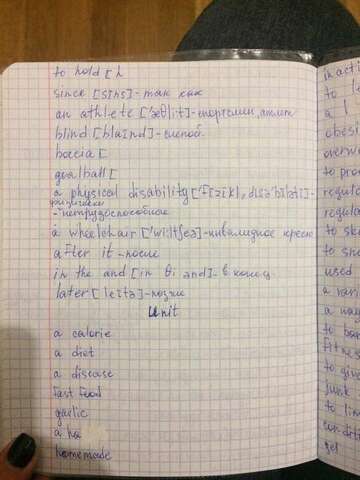 to hold [h
since [sɪns] - так как
an athlete ['æθli:t] - спортсмен, атлет
blind [blaɪnd] - слепой
boccia [
goalball [
a physical disability ['fɪzɪk), dɪsə'bɪləti] -
- нетрудоспособное
a wheelchair ['wi:ltʃeə] - инвалидное кресло
after it - после
in the and [in θi and] - в конце
later [leɪtə] - позже
Unit
a calorie
a diet
a disease
fast food
garlic
a ha
homemade
in acti
to le
a l
obesi
overw
to pro
regula
regula
to sk
to sn
used
a vari
a way
to ba
fitnes
to giv
junk
to lim
con-diti
gel